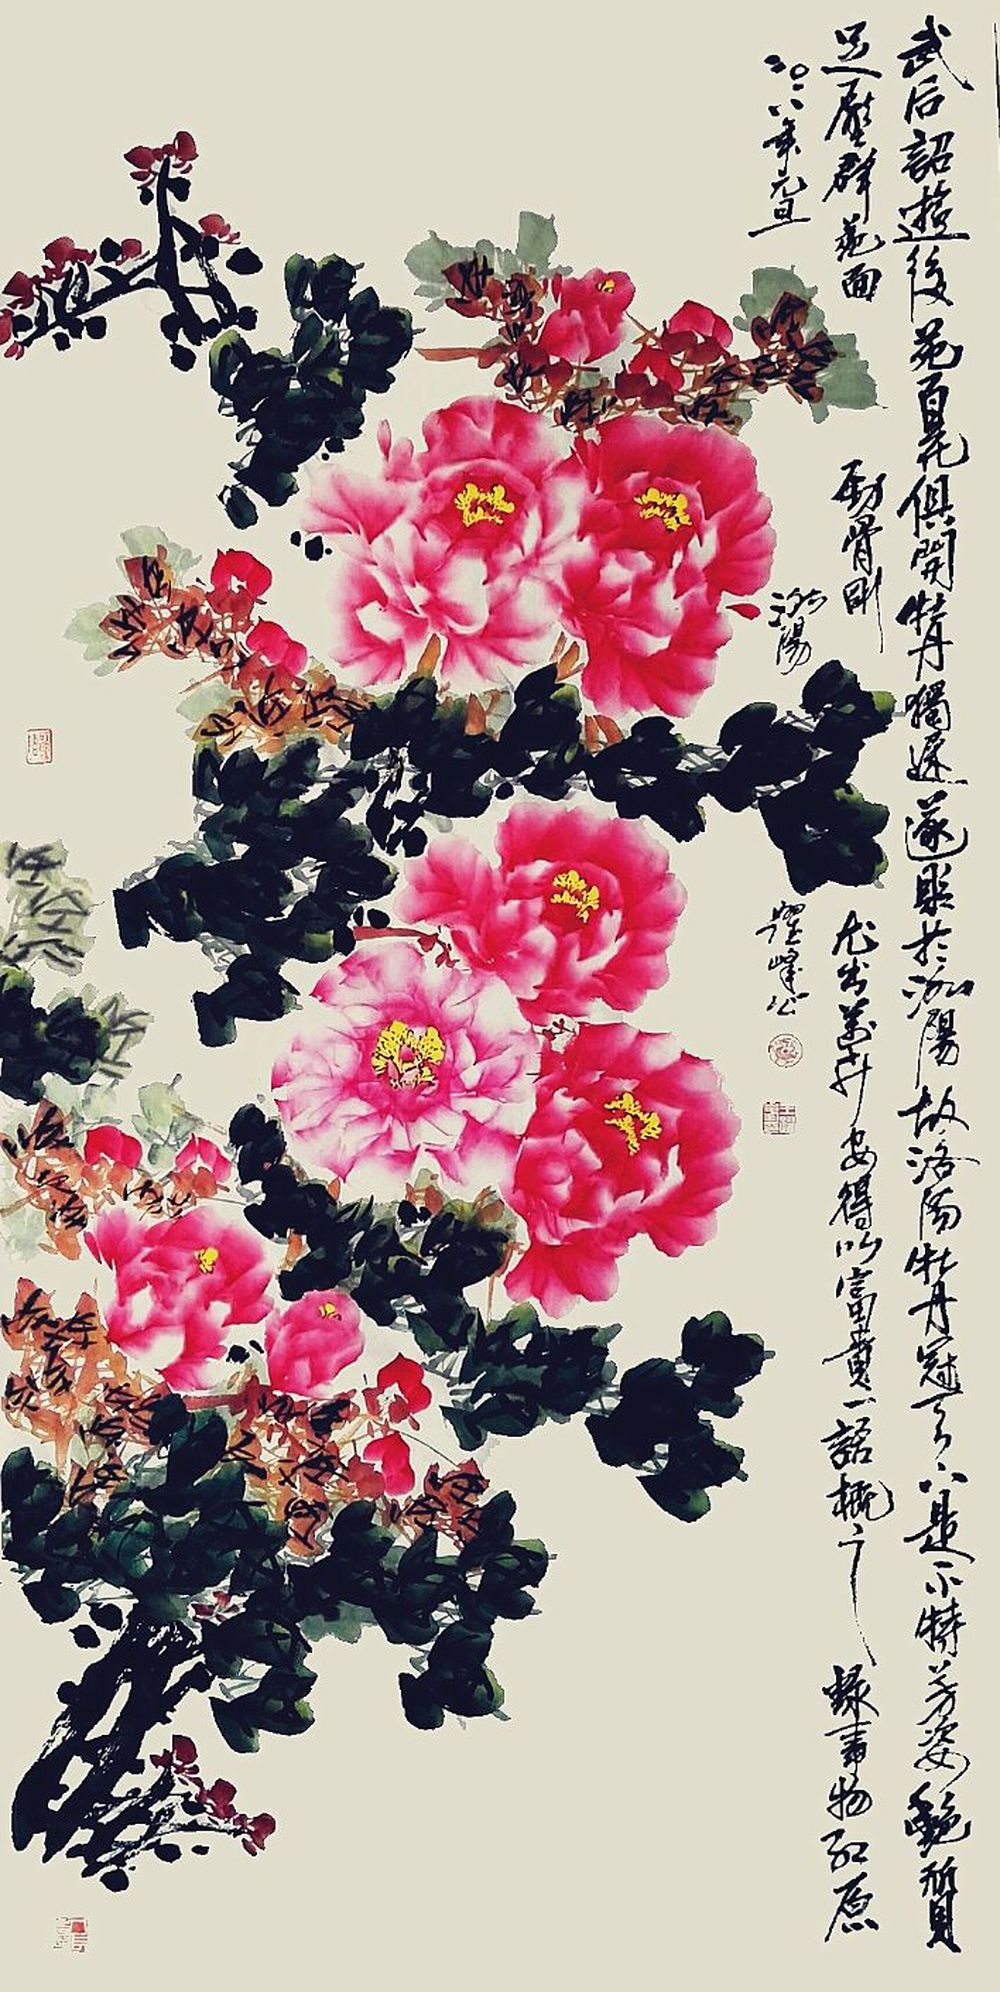 武后詔遊後苑百花俱開牡丹獨遲遂貶於洛陽故洛陽牡丹冠天下是不特芳姿艷質
足壓群葩而勁骨剛心尤出萬卉安得以富貴一語概之 錄事物紀原
二〇一八年元旦洛陽躍峰